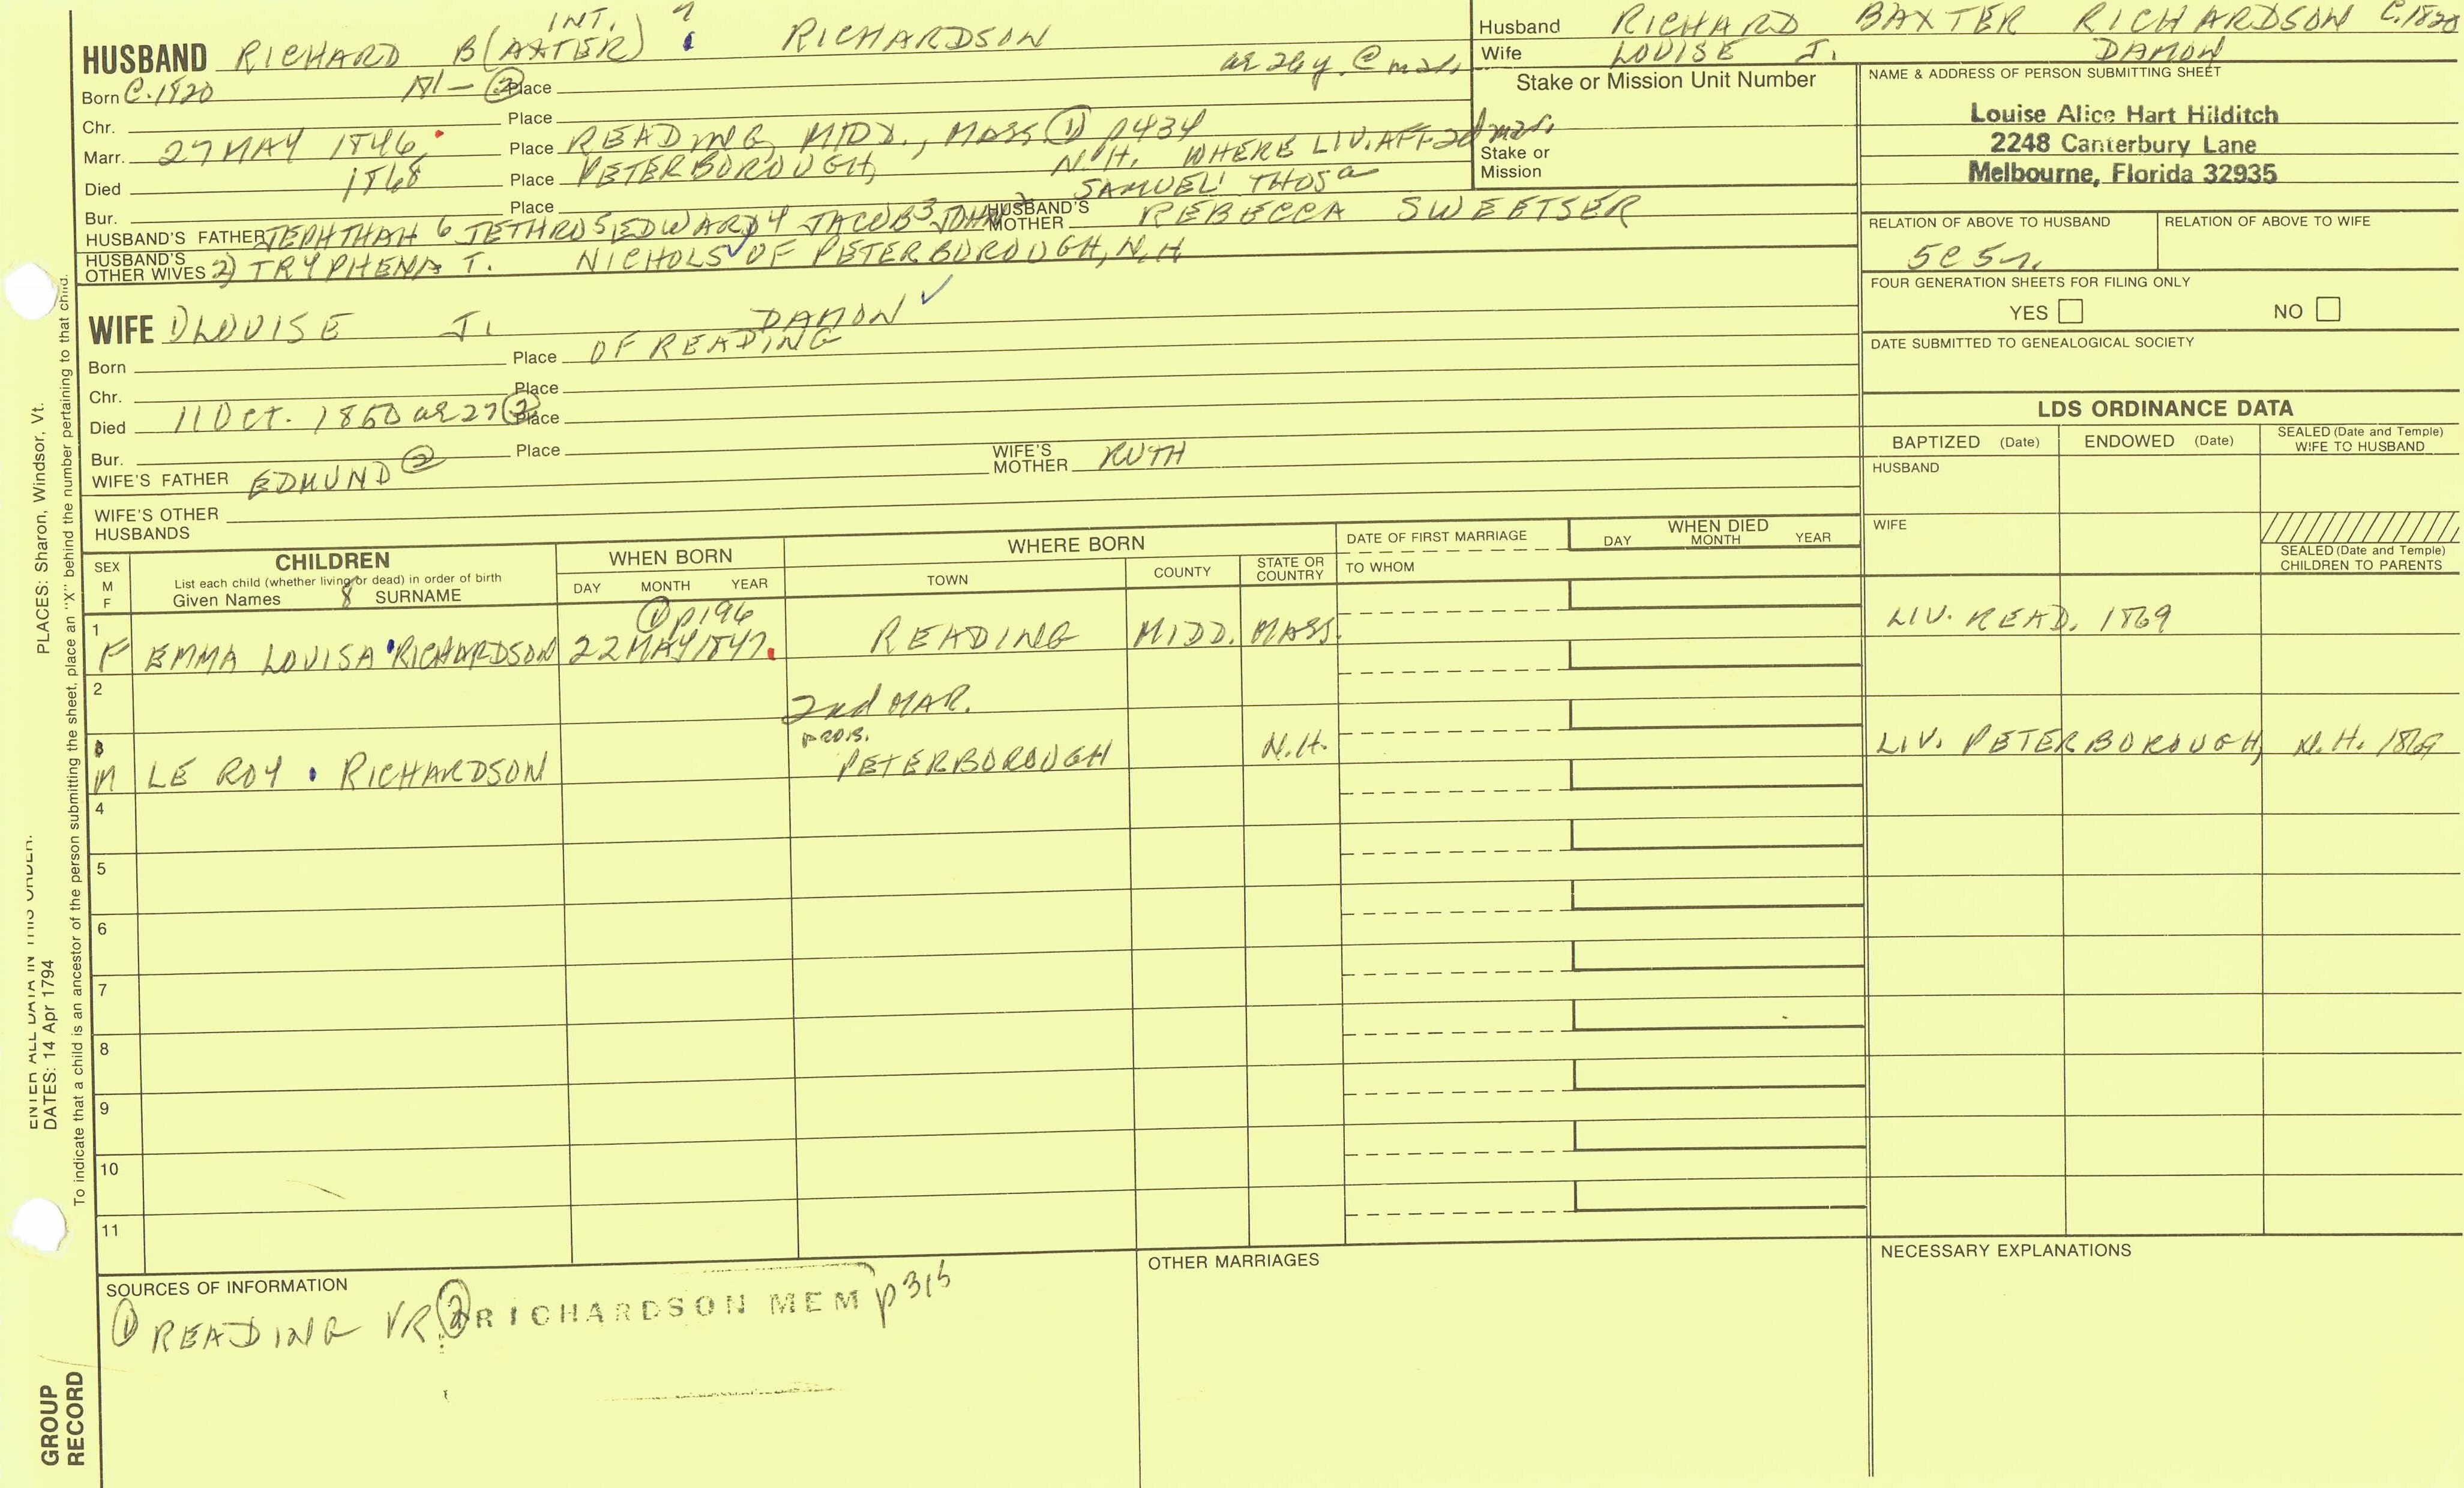 INT. 7
HUSBAND RICHARD B(AXTER) RICHARDSON
Husband RICHARD BAXTER RICHARDSON C.1820
Wife LOUISE J. DAMON
Born C.1820 Place
Chr. Place
Marr. 27 MAY 1846 Place READING, MIDD., MASS ① p434
Died 1868 Place PETERBOROUGH, N.H. WHERE LIV. AFT 2d mar.
Bur. Place SAMUEL THOS
HUSBAND'S FATHER JEPHTHAH 6 JETHRO 5 EDWARD 4 JACOB 3 JOHN HUSBAND'S MOTHER REBECCA SWEETSER
HUSBAND'S OTHER WIVES 2) TRYPHENA T. NICHOLS OF PETERBOROUGH, N.H
Stake or Mission Unit Number
Stake or
Mission
NAME & ADDRESS OF PERSON SUBMITTING SHEET
Louise Alice Hart Hilditch
2248 Canterbury Lane
Melbourne, Florida 32935
RELATION OF ABOVE TO HUSBAND RELATION OF ABOVE TO WIFE
5C5r.
FOUR GENERATION SHEETS FOR FILING ONLY
YES NO
DATE SUBMITTED TO GENEALOGICAL SOCIETY
WIFE 1) LOUISE J. DAMON
Born Place OF READING
Chr. Place
Died 11 Oct. 1850 ae 27 ② Place
Bur. Place
WIFE'S FATHER EDMUND ② WIFE'S MOTHER RUTH
WIFE'S OTHER
HUSBANDS
LDS ORDINANCE DATA
BAPTIZED (Date) ENDOWED (Date) SEALED (Date and Temple) WIFE TO HUSBAND
HUSBAND
WIFE
SEALED (Date and Temple)
CHILDREN TO PARENTS
SEX M F CHILDREN WHEN BORN WHERE BORN DATE OF FIRST MARRIAGE WHEN DIED
List each child (whether living or dead) in order of birth
Given Names 8 SURNAME DAY MONTH YEAR TOWN COUNTY STATE OR COUNTRY TO WHOM DAY MONTH YEAR
① p196
1 F EMMA LOUISA RICHARDSON 22 MAY 1847. READING MIDD. MASS. LIV. READ. 1869
2 2nd MAR.
PROB.
3 M LE ROY RICHARDSON PETERBOROUGH N.H. LIV. PETERBOROUGH, N.H. 1869
4
5
6
7
8
9
10
11
SOURCES OF INFORMATION
① READING VR ② RICHARDSON MEM p315
OTHER MARRIAGES
NECESSARY EXPLANATIONS
PLACES: Sharon, Windsor, Vt.
ENTER ALL DATA IN THIS ORDER:
DATES: 14 Apr 1794
To indicate that a child is an ancestor of the person submitting the sheet, place an "X" behind the number pertaining to that child.
GROUP
RECORD